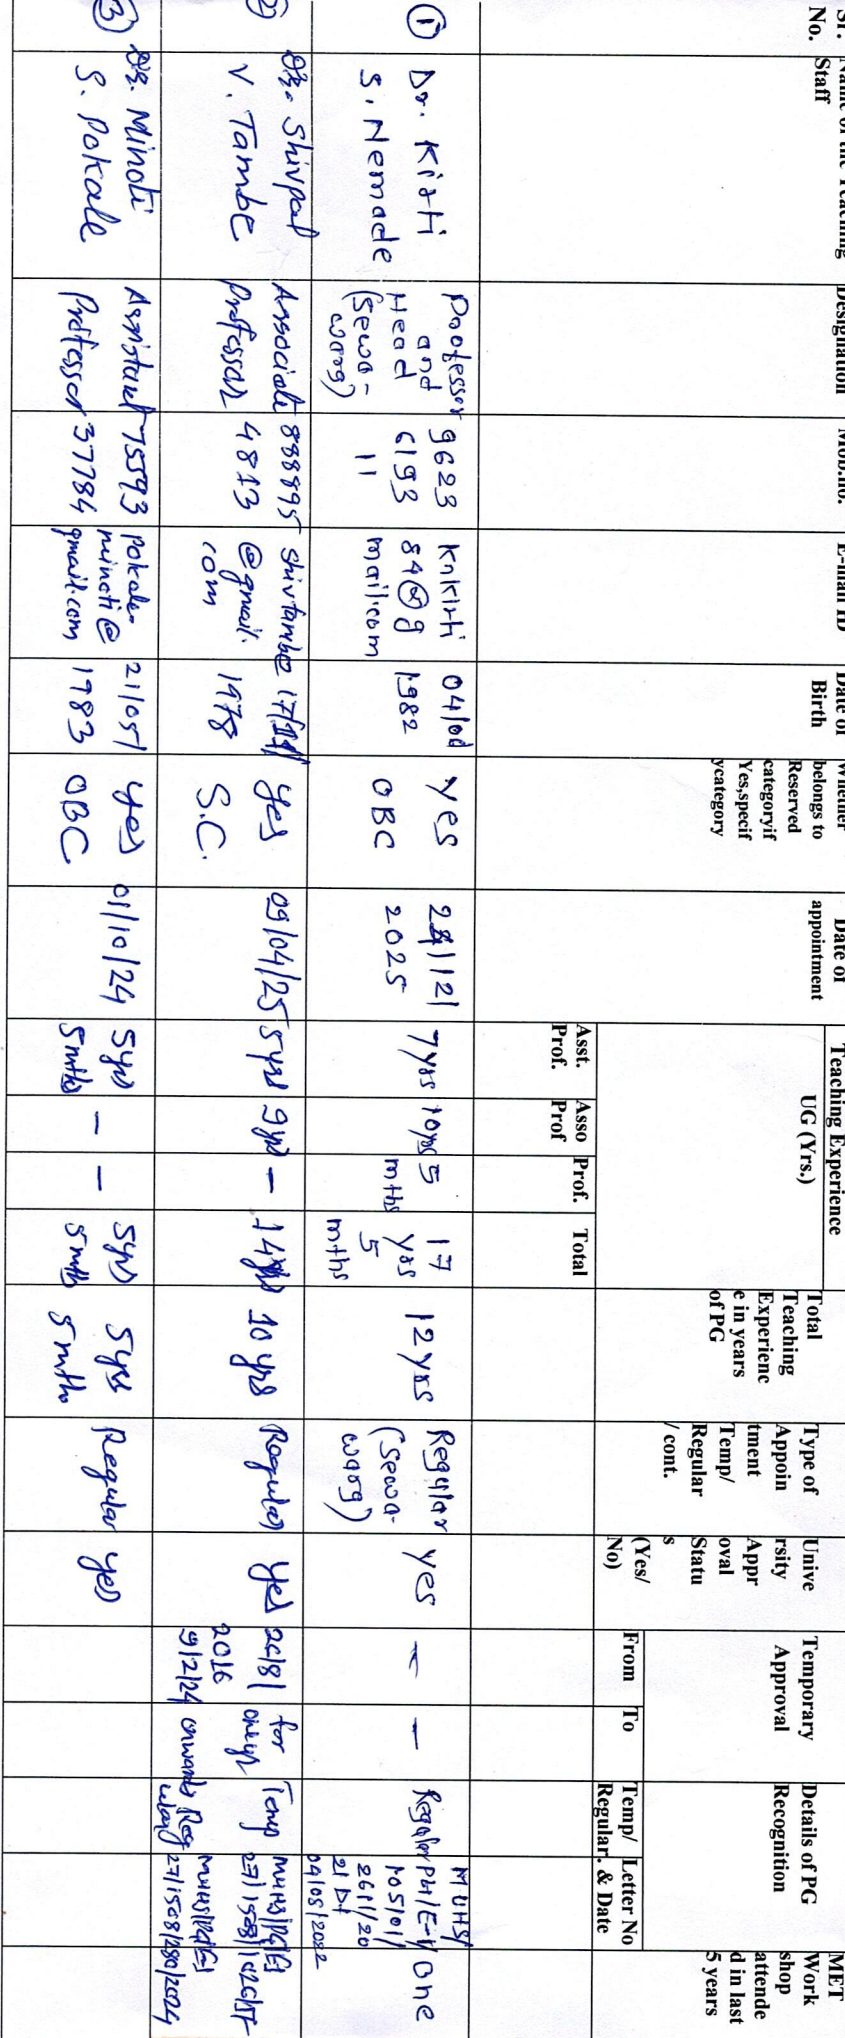 Sr. No.
Name of the Teaching Staff
Designation
Mob.no.
E-mail ID
Date of Birth
Whether belongs to Reserved categoryif Yes,specif ycategory
Date of appointment
Teaching Experience
UG (Yrs.)
Asst. Prof.
Asso Prof
Prof.
Total
Total Teaching Experienc e in years of PG
Type of Appoin tment Temp/ Regular / cont.
Unive rsity Appr oval Statu s (Yes/ No)
Temporary Approval
From
To
Details of PG Recognition
Temp/ Regular.
Letter No . & Date
MET Work shop attende d in last 5 years
①
Dr. Kirti
S. Nemade
Professor
and
Head
(Sewa-
warg)
9623
6193
11
knkirti
84@g
mail.com
1982
yes
OBC
2025
7yrs
10yrs
5
mths
17
yrs
5
mths
12yrs
Regular
(Sewa-
warg)
yes
-
-
Regular
MUHS/
PH/E-1/
105/01/
2611/20
21 Dt
04/05/2022
One
2)
Dr. Shivpal
V. Tambe
Associate
Professor
888895
4813
shivtambe
@gmail.
com
1978
yes
S.C.
09/04/25
5yrs
9yrs
-
14yrs
10yrs
Regular
Yes
26/8/
2016
9/2/24
for
one yr
onwards
Temp
Reg
ular
27/1508/280/2024
③
Dr. Minoti
S. Pokale
Assistant
Professor
75593
37784
pokale
minoti@
gmail.com
21/05/
1983
yes
OBC
01/10/24
5yrs
5mths
-
-
5yrs
5mths
5yrs
5mths
Regular
yes